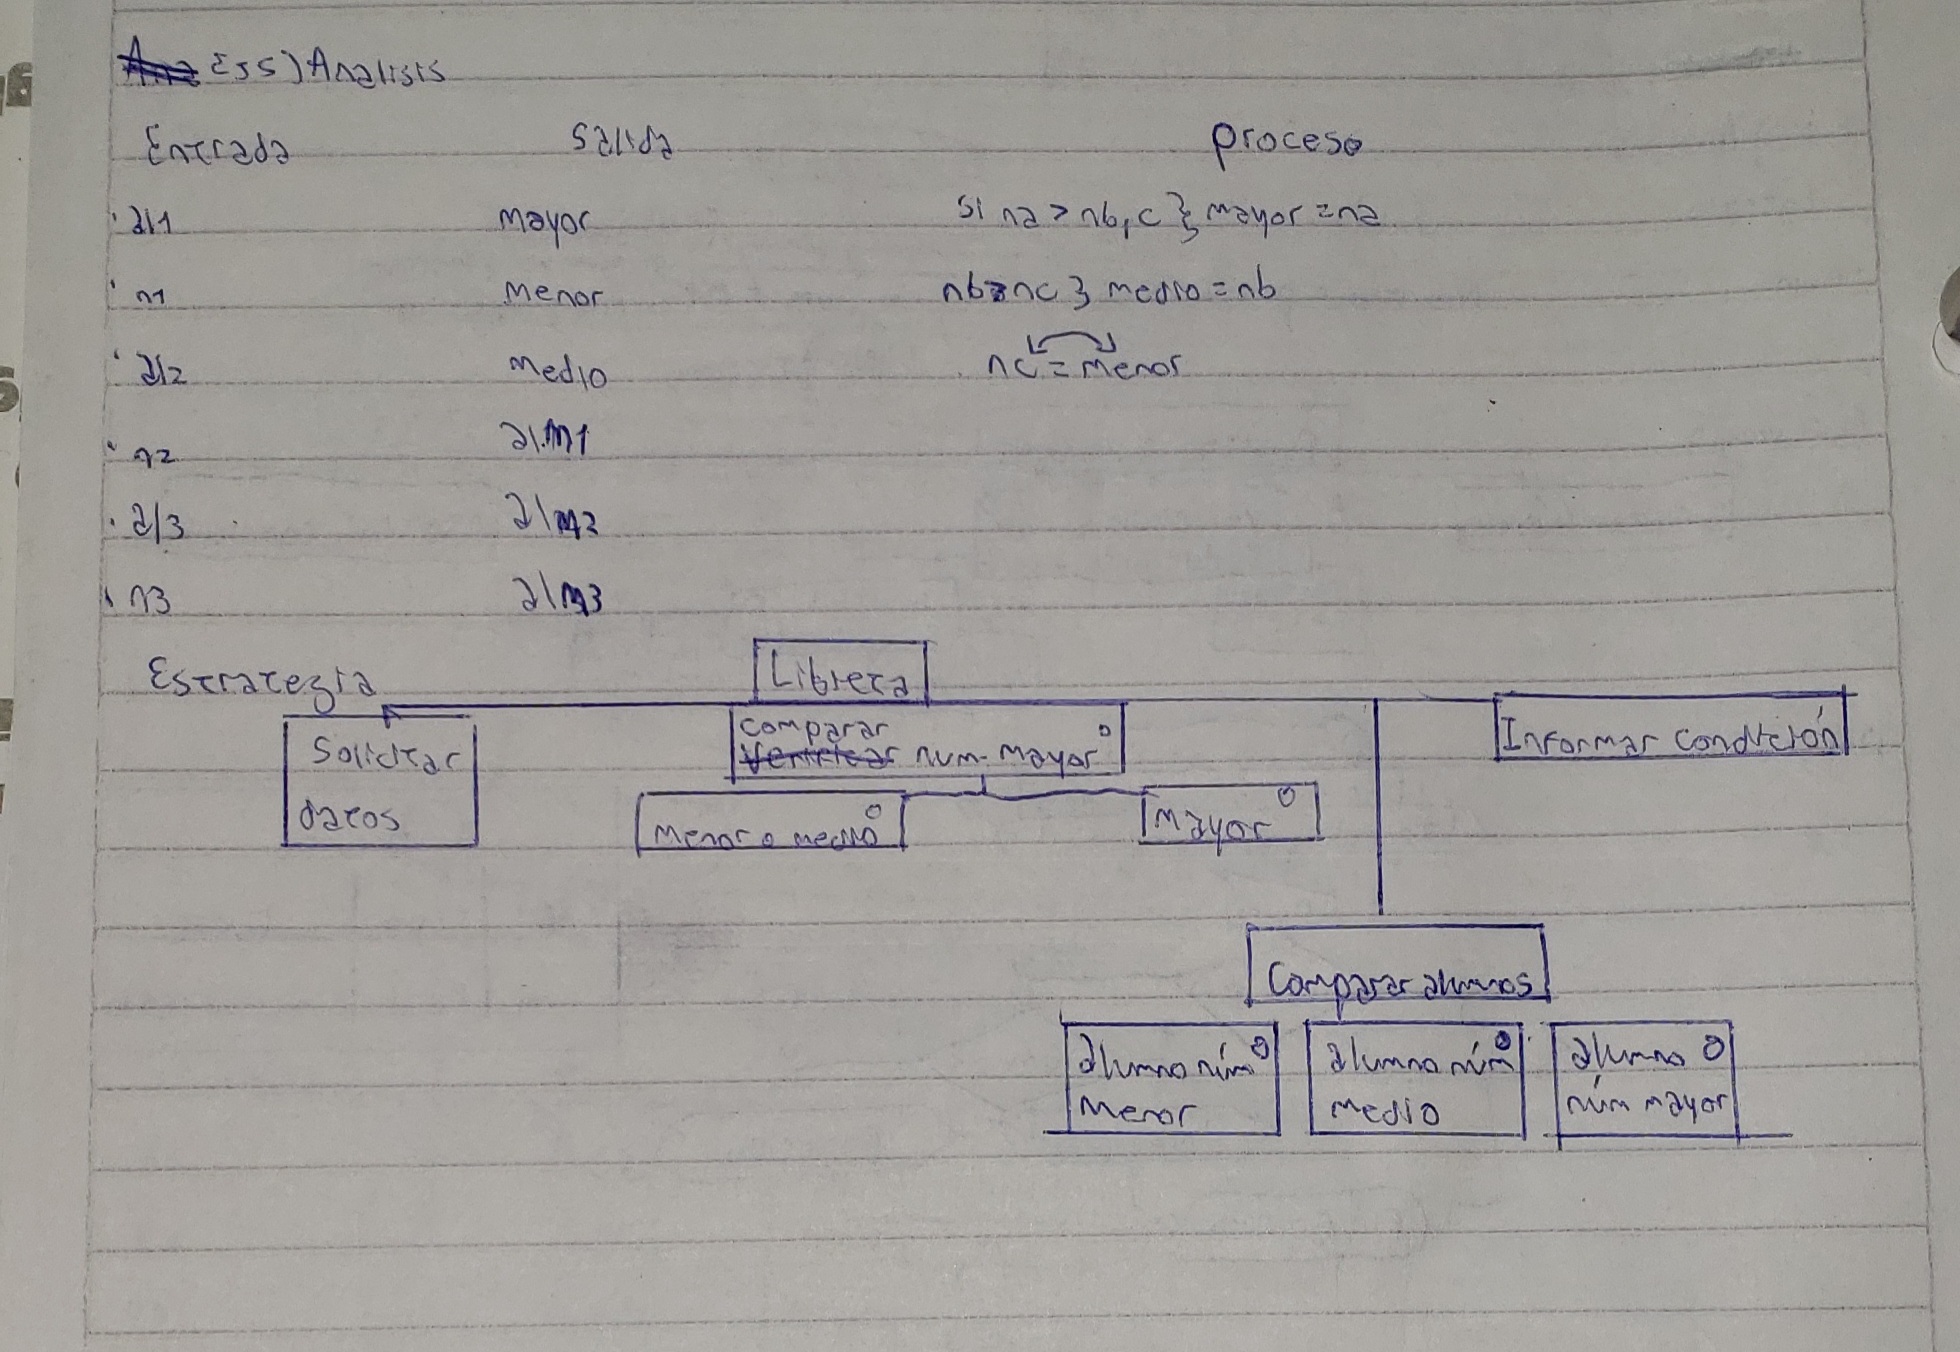 Ej5) Analisis
Entrada Salida proceso
al1 mayor si na > nb,c } mayor = na
n1 menor nb>nc } medio = nb
al2 medio nc = menor
n2 alm1
al3 alm2
n3 alm3
Estrategia
Libreta
Solicitar
datos
comparar
num-mayor
Informar condición
menor o medio
mayor
Comparar alumnos
alumno núm
menor
alumno núm
medio
alumno
núm mayor